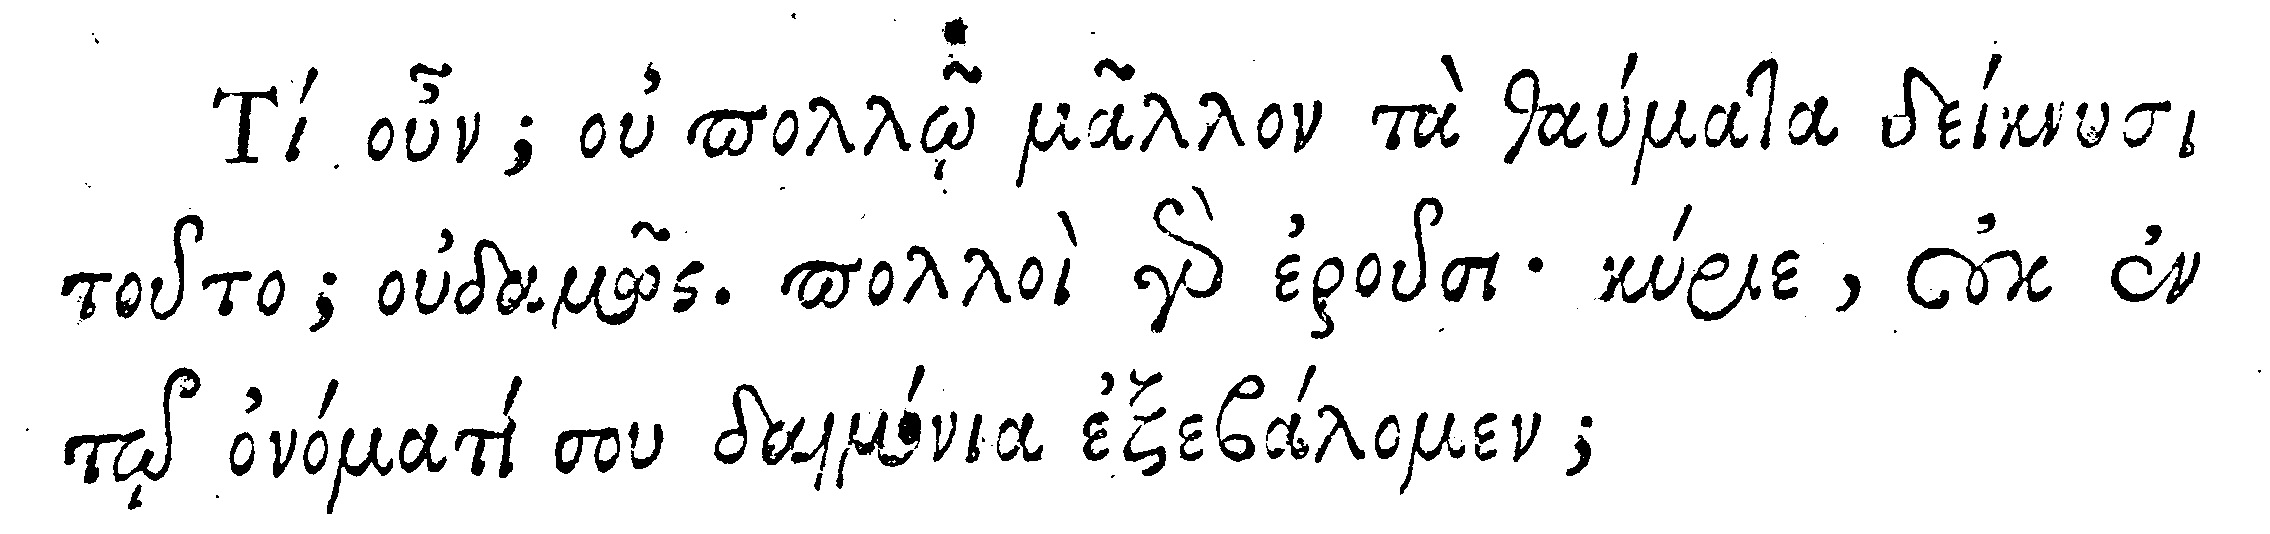 Τί οὖν; οὐ πολλῷ μᾶλλον τὰ θαύματα δείκνυσι
τοῦτο; οὐδαμῶς. πολλοὶ γὰρ ἐροῦσι· κύριε, οὐκ ἐν
τῷ ὀνόματί σου δαιμόνια ἐξεβάλομεν;